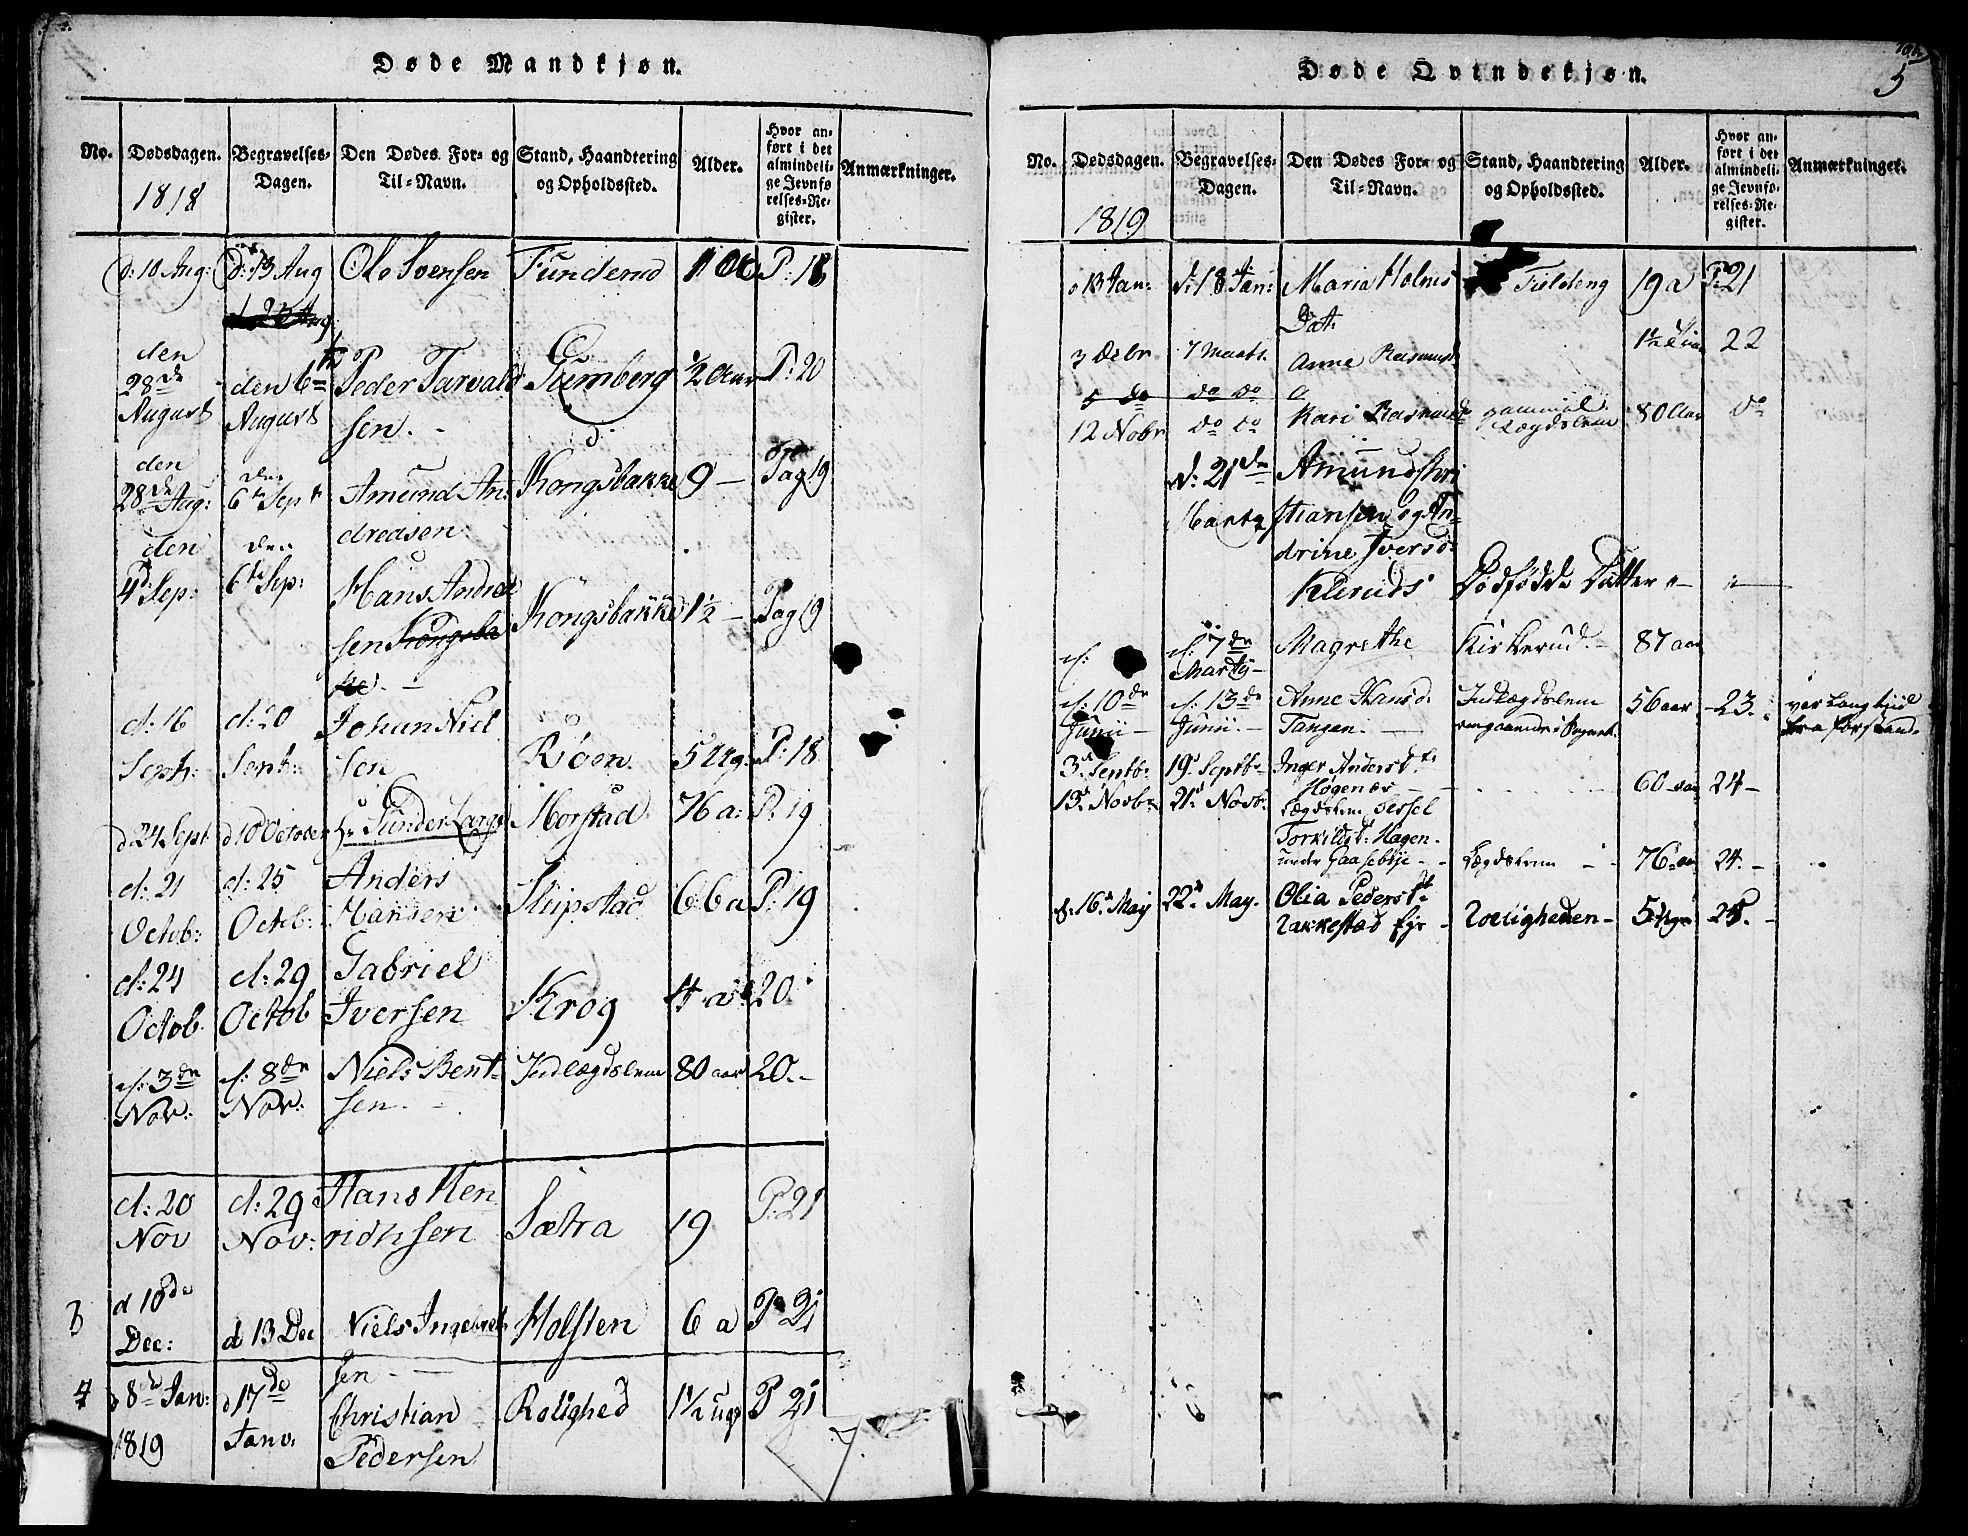 Døde Mandkjøn.
No.
Dødsdagen.
1818
Begravelses-
Dagen.
Den Dødes For- og
Til-Navn.
Stand, Haandtering
og Opholdssted.
Alder.
Hvor an-
ført i det
almindeli-
ge Jevnfø
relses-Re-
gister.
Anmærkninger.
d: 10 Aug: d: 13 Aug Ole Svensen P: 18
den
28de
August
den 6te
August
Peder Tarvald
sen. -
Gumberg
1/2 Aar P: 20
den
28de Aug:
den
6te Sept
Amund An-
dreasen
Kongsbakke 9 - Pag 19
den
4d: Sep:
den
6te Sep:
Hans Andrea
sen Kongsba
ke. -
Kongsbakke 1½ - Pag 19
d: 16
Septb:
d: 20
Septb:
Johan Niel
sen
Röen 5 Ug: P: 18
d 24 Sept d 10 October Gunder Morstad 76 a: P. 19
d: 21
Octob:
d: 25
Octob:
Anders
Hansen
Slupstad 66 a P: 19
d: 24
Octob.
d: 29
Octob
Gabriel
Iversen
Krog 20.
d: 3de
Nov:
d: 8de
Nov:
Niels Bent-
sen. -
Indlægdslem 80 aar 20. -
d: 20
Nov
d: 29
Nov:
Hans Hen
richsen
Sætra 19 P: 21
3
d 10de
Dec:
d 13 Dec Niels Ingebret
sen -
Holsten 6 a P 21
4
d 8de Jan:
1819
d 17de
Janv:
Christian
Pedersen
Rolighed 1½ uge P 21
Døde Qvindekjøn.
5
No.
Dødsdagen.
1819
Begravelses-
Dagen.
Den Dødes For- og
Til-Navn.
Stand, Haandtering
og Opholdssted.
Alder.
Hvor an-
ført i det
almindeli-
ge Jevnfø-
relses-Re-
gister.
Anmærkninger.
d 13 Jan: d: 18 Jan: Maria Holms
Dat:
Fieldeng 19 a P: 21
3 Debr 7 Marts Anne Rasmusd. 22
5 do do do
12 Nobr do do Kari Rasmusd
gammel
Lægdslem
80 Aar do
d: 21de
Martz
Amund Kri
stiansen og An-
drine Iversd:
Kleruds Dødfödde Datter " - " -
d: d: 7de
Martij -
Magrethe Kirkerud. - 87 aar
d: 10de
Junii -
d: 13de
Junii. -
Anne Hansd:
Tangen. -
Indlægdslem
omgaaende i Sognet.
56 aar - 23.
var lang tiid
fra forstand.
3d Septb: 19d Septb: Inger Anderst.
Høgenær - 60 aar 24 -
13d Novbr. 21d Novbr. Lægdslem Sessel
Torkildst: Hagen.
under Gaasebye - - Lægdslem - 76 aar 24. -
d: 16d May 22d May. Olia Pederst.
Rakkestad Eje - Roeligheden - 5 Uger 25. -